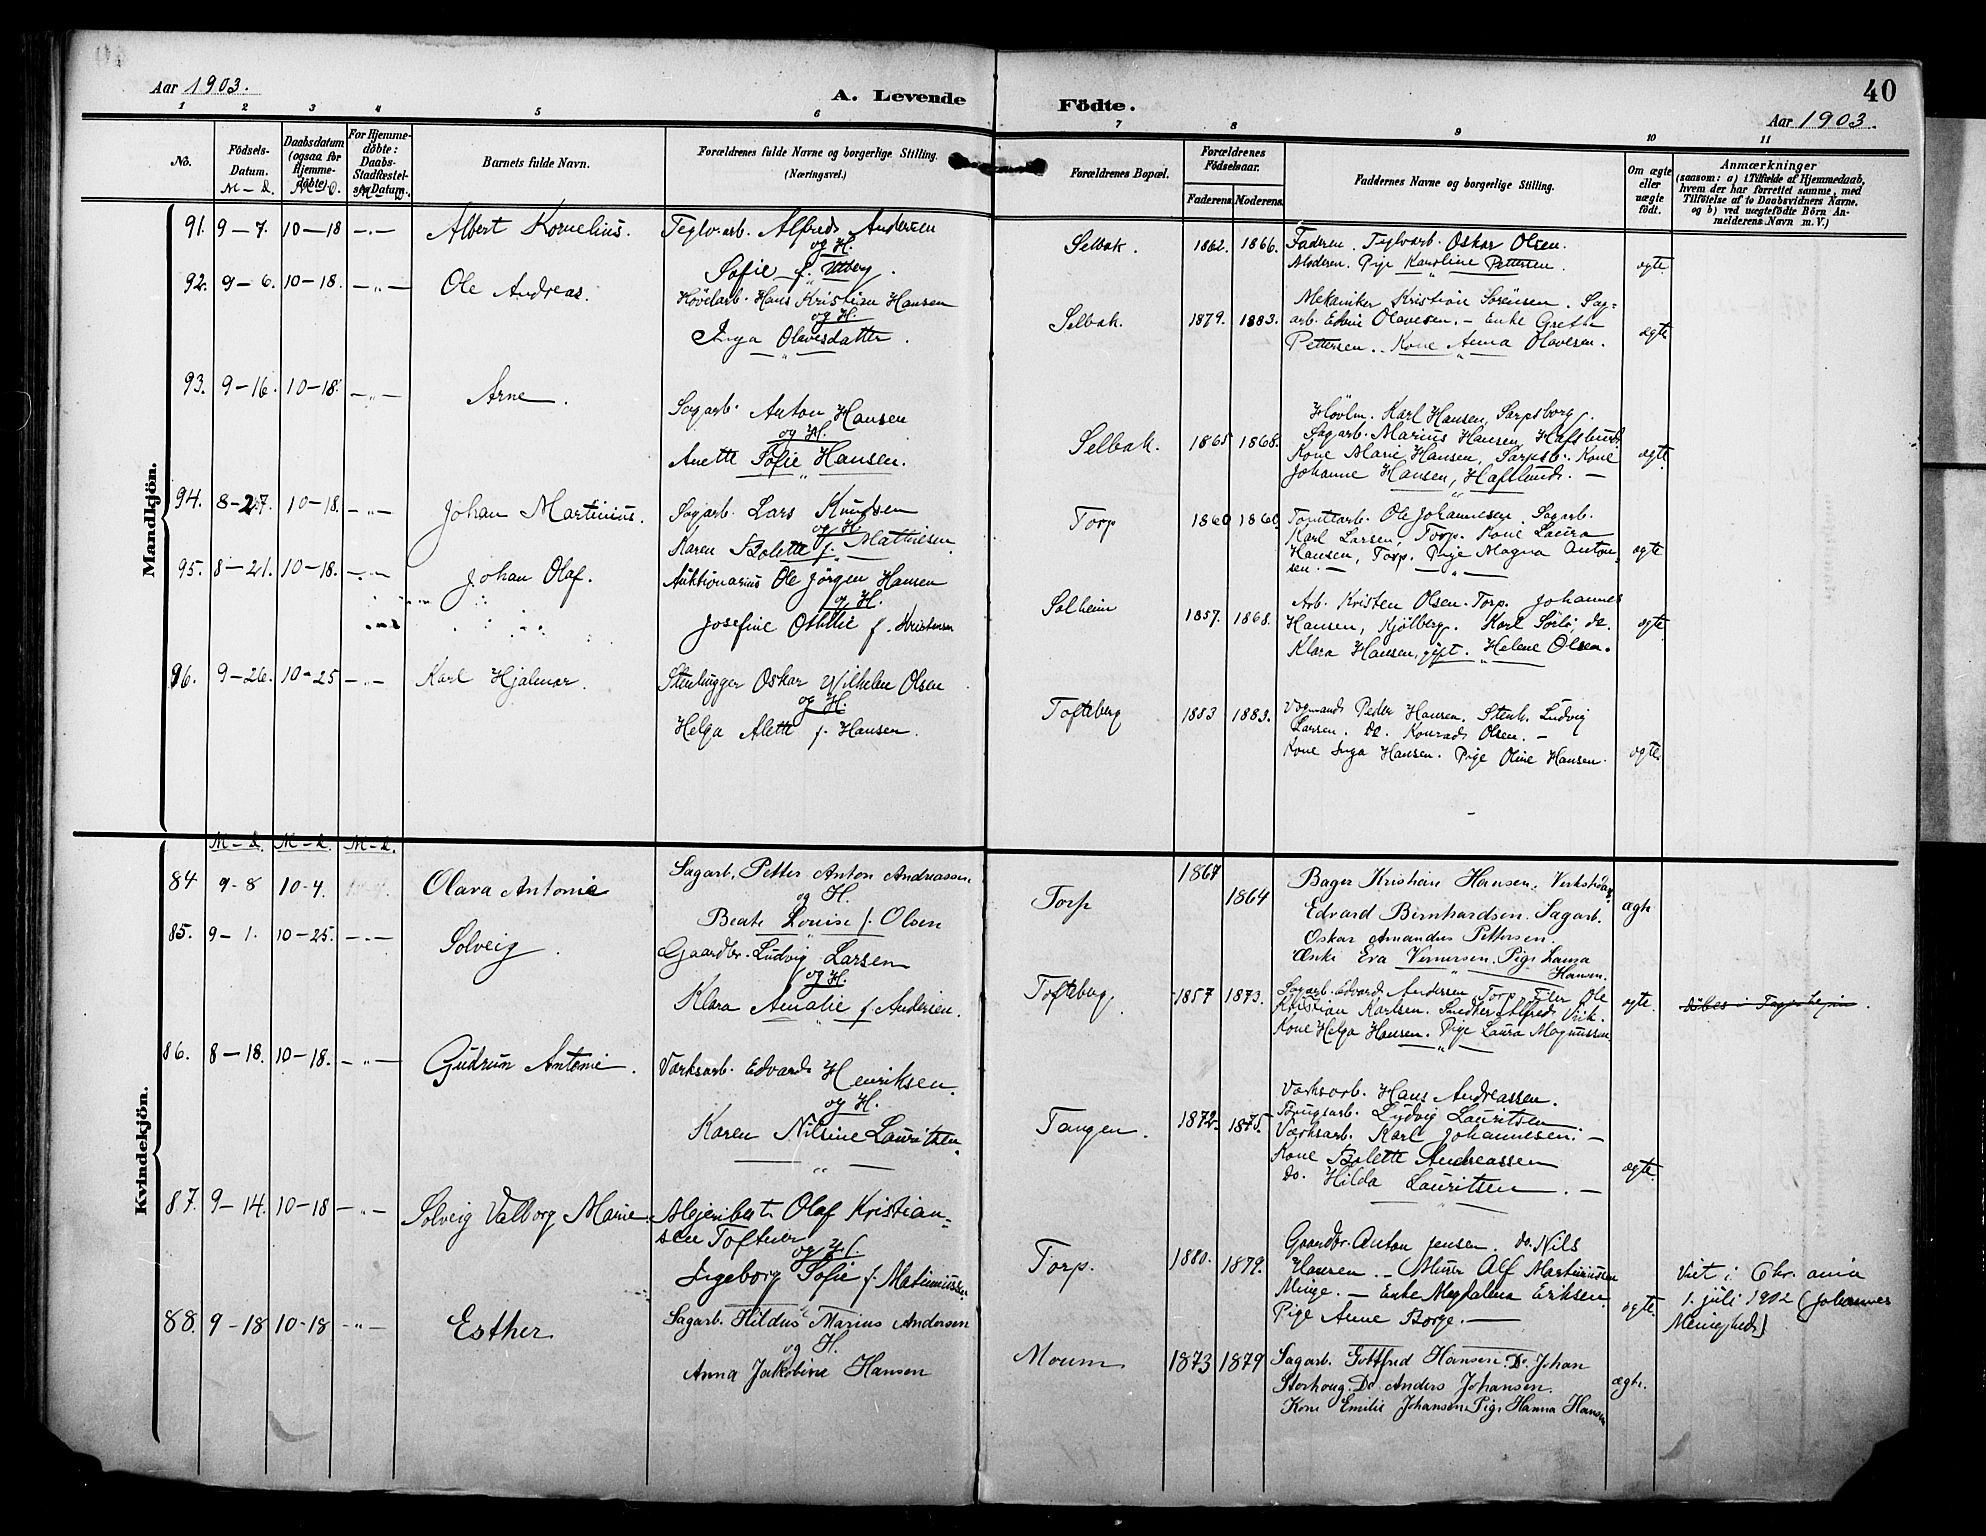 Aar 1903.
A. Levende Födte.
40
Aar 1903.
1 2 3 4 5 6 7 8 9 10 11
No.
Födsels-
Datum.
M – D.
Daabsdatum
(ogsaa for
Hjemme-
döbte).
M – D.
For Hjemme-
döbte:
Daabs-
Stadfæstel-
ses Datum.
M – D.
Barnets fulde Navn.
Forældrenes fulde Navne og borgerlige Stilling.
(Næringsvei.)
Forældrenes Bopæl.
Forældrenes
Födselsaar.
Faderens. Moderens.
Faddernes Navne og borgerlige Stilling.
Om ægte
eller
uægte
födt.
Anmærkninger
(saasom: a) i Tilfælde af Hjemmedaab,
hvem der har forrettet samme, med
Tilföielse af to Daabsvidners Navne,
og b) ved uægtefödte Börn An-
melderens Navn m. V.)
Mandkjön.
91. 9–7. 10–18 –"– Albert Kornelius. Teglv.arb. Alfred Andersen
og H.
Sofie f. Utberg.
Selbak. 1862. 1866. Faderen. Teglvarb. Oskar Olsen.
Moderen. Pige Karoline Pettersen.
ægte
92. 9–6. 10–18. –"– Ole Andreas. Høvelarb. Hans Kristian Hansen
og H.
Inga Olavesdatter.
Selbak. 1879. 1883. Mekaniker Kristian Sørensen. Sag-
arb. Edvin Olavesen. – Enke Grethe
Pettersen. Kone Anna Olavesen.
ægte
93. 9–16. 10–18. –"– Arne. Sagarb. Anton Hansen
og H.
Anette Sofie Hansen.
Selbak. 1865 1868. Høvlm. Karl Hansen, Sarpsborg.
Sagarb. Marius Hansen, Hafslund.
Kone Marie Hansen, Sarpsb. Kone
Johanne Hansen, Hafslund. –
ægte
94. 8–27. 10–18. –"– Johan Martinius. Sagarb. Lars Knudsen
og H.
Karen Bolette f. Mathiesen.
Torp 1860 1860. Tomtearb. Ole Johannesen. Sagarb.
Karl Larsen, Torp. Kone Laura
Hansen, Torp. Pige Magna Anton-
sen. –
ægte
95. 8–21. 10–18. –"– Johan Olaf. Auktionarius Ole Jörgen Hansen
og H.
Josefine Othilie f. Kristensen
Solheim 1857. 1868. Arb. Kristen Olsen. Torp. Johannes
Hansen, Kjölberg. Karl Sörli do.
Klara Hansen, gift. Helene Olsen.
ægte
96. 9–26. 10–25 –"– Karl Hjalmar. Stenhugger Oskar Vilhelm Olsen
og H.
Helga Alette f. Hansen.
Tofteberg 1883 1883. Vognmand Peder Hansen. Stenh. Ludvig
Larsen. do. Konrad Olsen. –
Kone Inga Hansen. Pige Oline Hansen.
ægte.
Kvindekjön.
M–D. M–D. M–D.
84 9–8 10–4. Olava Antonie Sagarb. Petter Anton Andreassen
og H.
Beate Louise f. Olsen
Torp 1867 1864 Bager Kristian Hansen.
Edvard Bernhardsen. Sagarb.
Oskar Amandus Pettersen.
Enke Eva Vernersen. Pige Laura
Hansen.
ægte
85. 9–1. 10–25. –"– Solveig. Gaardbr. Ludvig Larsen
og H.
Klara Amalie f. Andersen.
Tofteberg. 1857 1873. Sagarb. Edvard Andersen, Torp. Filer Ole
Kristian Karlsen. Smed Alfred Viik.
Kone Helga Hansen. Pige Laura Magnussen
ægte.
86. 8–18. 10–18. –"– Gudrun Antonie. Værksarb. Edvard Henriksen.
og H.
Karen Nilsine Lauritsen.
Tangen. 1872. 1875. Værksarb. Hans Andreassen.
Brugsarb. Ludvig Lauritsen.
Værksarb. Karl Johannesen. –
Kone Bolette Andreassen
do. Hilda Lauritsen. –
ægte.
87. 9–14. 10–18 –"– Solveig Valborg Marie. Mejeribest. Olaf Kristian-
sen Toftner
og H.
Ingeborg Sofie f. Matinussen
Torp. 1880. 1879. Gaardbr. Anton Jensen. do. Nils
Hansen. – Murer Alf Martinussen
Minge. – Enke Magdalena Eriksen.
Pige Anne Borge. –
ægte. Viet i Chr.ania
1. juli 1902 (Johannes
Menighed)
88. 9–18 10–18 –"– Esther Sagarb. Hildus Marius Andersen
og H.
Anna Jakobine Hansen
Moum 1873 1879 Sagarb. Gottfred Hansen. Do. Johan
Storhoug. Do Anders Johansen.
Kone Emilie Johansen. Pige Hanna Hansen
ægte.